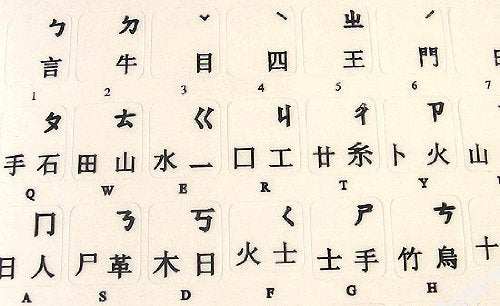 ㄅ ㄉ ˇ ˋ ㄓ ˊ
言 牛 目 四 王 門
1 2 3 4 5 6 7
ㄆ ㄊ ㄍ ㄐ ㄔ ㄗ
手 石 田 山 水 一 口 工 廿 糸 卜 火 山
Q W E R T Y
ㄇ ㄋ ㄎ ㄑ ㄕ ㄘ
日 人 尸 革 木 日 火 士 土 手 竹 鳥 十
A S D F G H